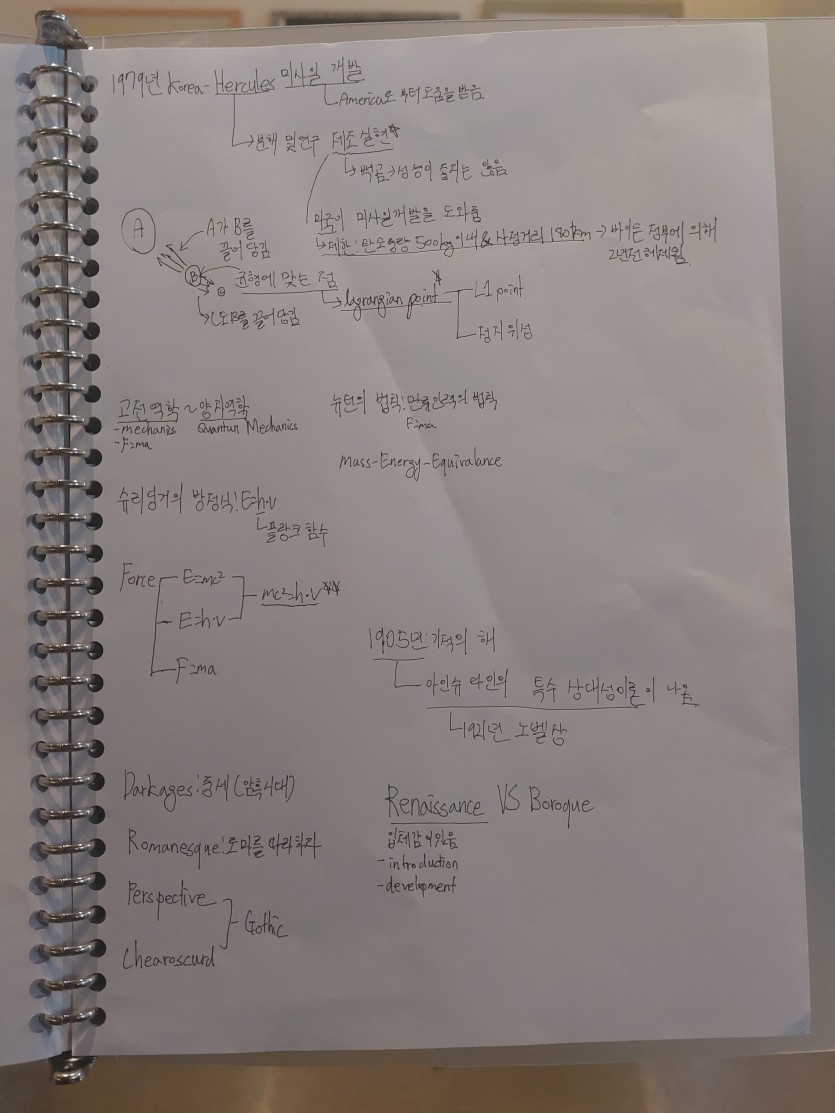 1979년 Korea-Hercules 미사일 개발
America로 부터 도움을 받음
→분해 및 연구 제조 실현*
→백곰→성능이 좋지는 않음
미국이 미사일개발을 도와줌
↳제한: 탄두중량 500kg이내 & 사정거리 180km → 바이든 정부에 의해
2년전 해제됨
A
A가 B를
끌어 당김
B
C
균형에 맞는 점
→lagrangian point*
L1 point
정지위성
→C도 B를 끌어 당김
고전역학 ~ 양자역학
-mechanics Quantun Mechanics
-F=ma
뉴턴의 법칙: 만류인력의 법칙
F=ma
Mass-Energy-Equivalance
슈리딩거의 방정식: E=h·v
플랑크 함수
Force
E=mc²
E=h·v
mc²=h·v**
F=ma
1905년: 기적의 해
아인슈타인의 특수 상대성이론이 나옴
1921년 노벨상
Darkages: 중세 (암흑시대)
Romanesque: 로마를 따라하자
Perspective
Chearoscurd
Gothic
Renaissance VS Boroque
입체감이 있음
-introduction
-development